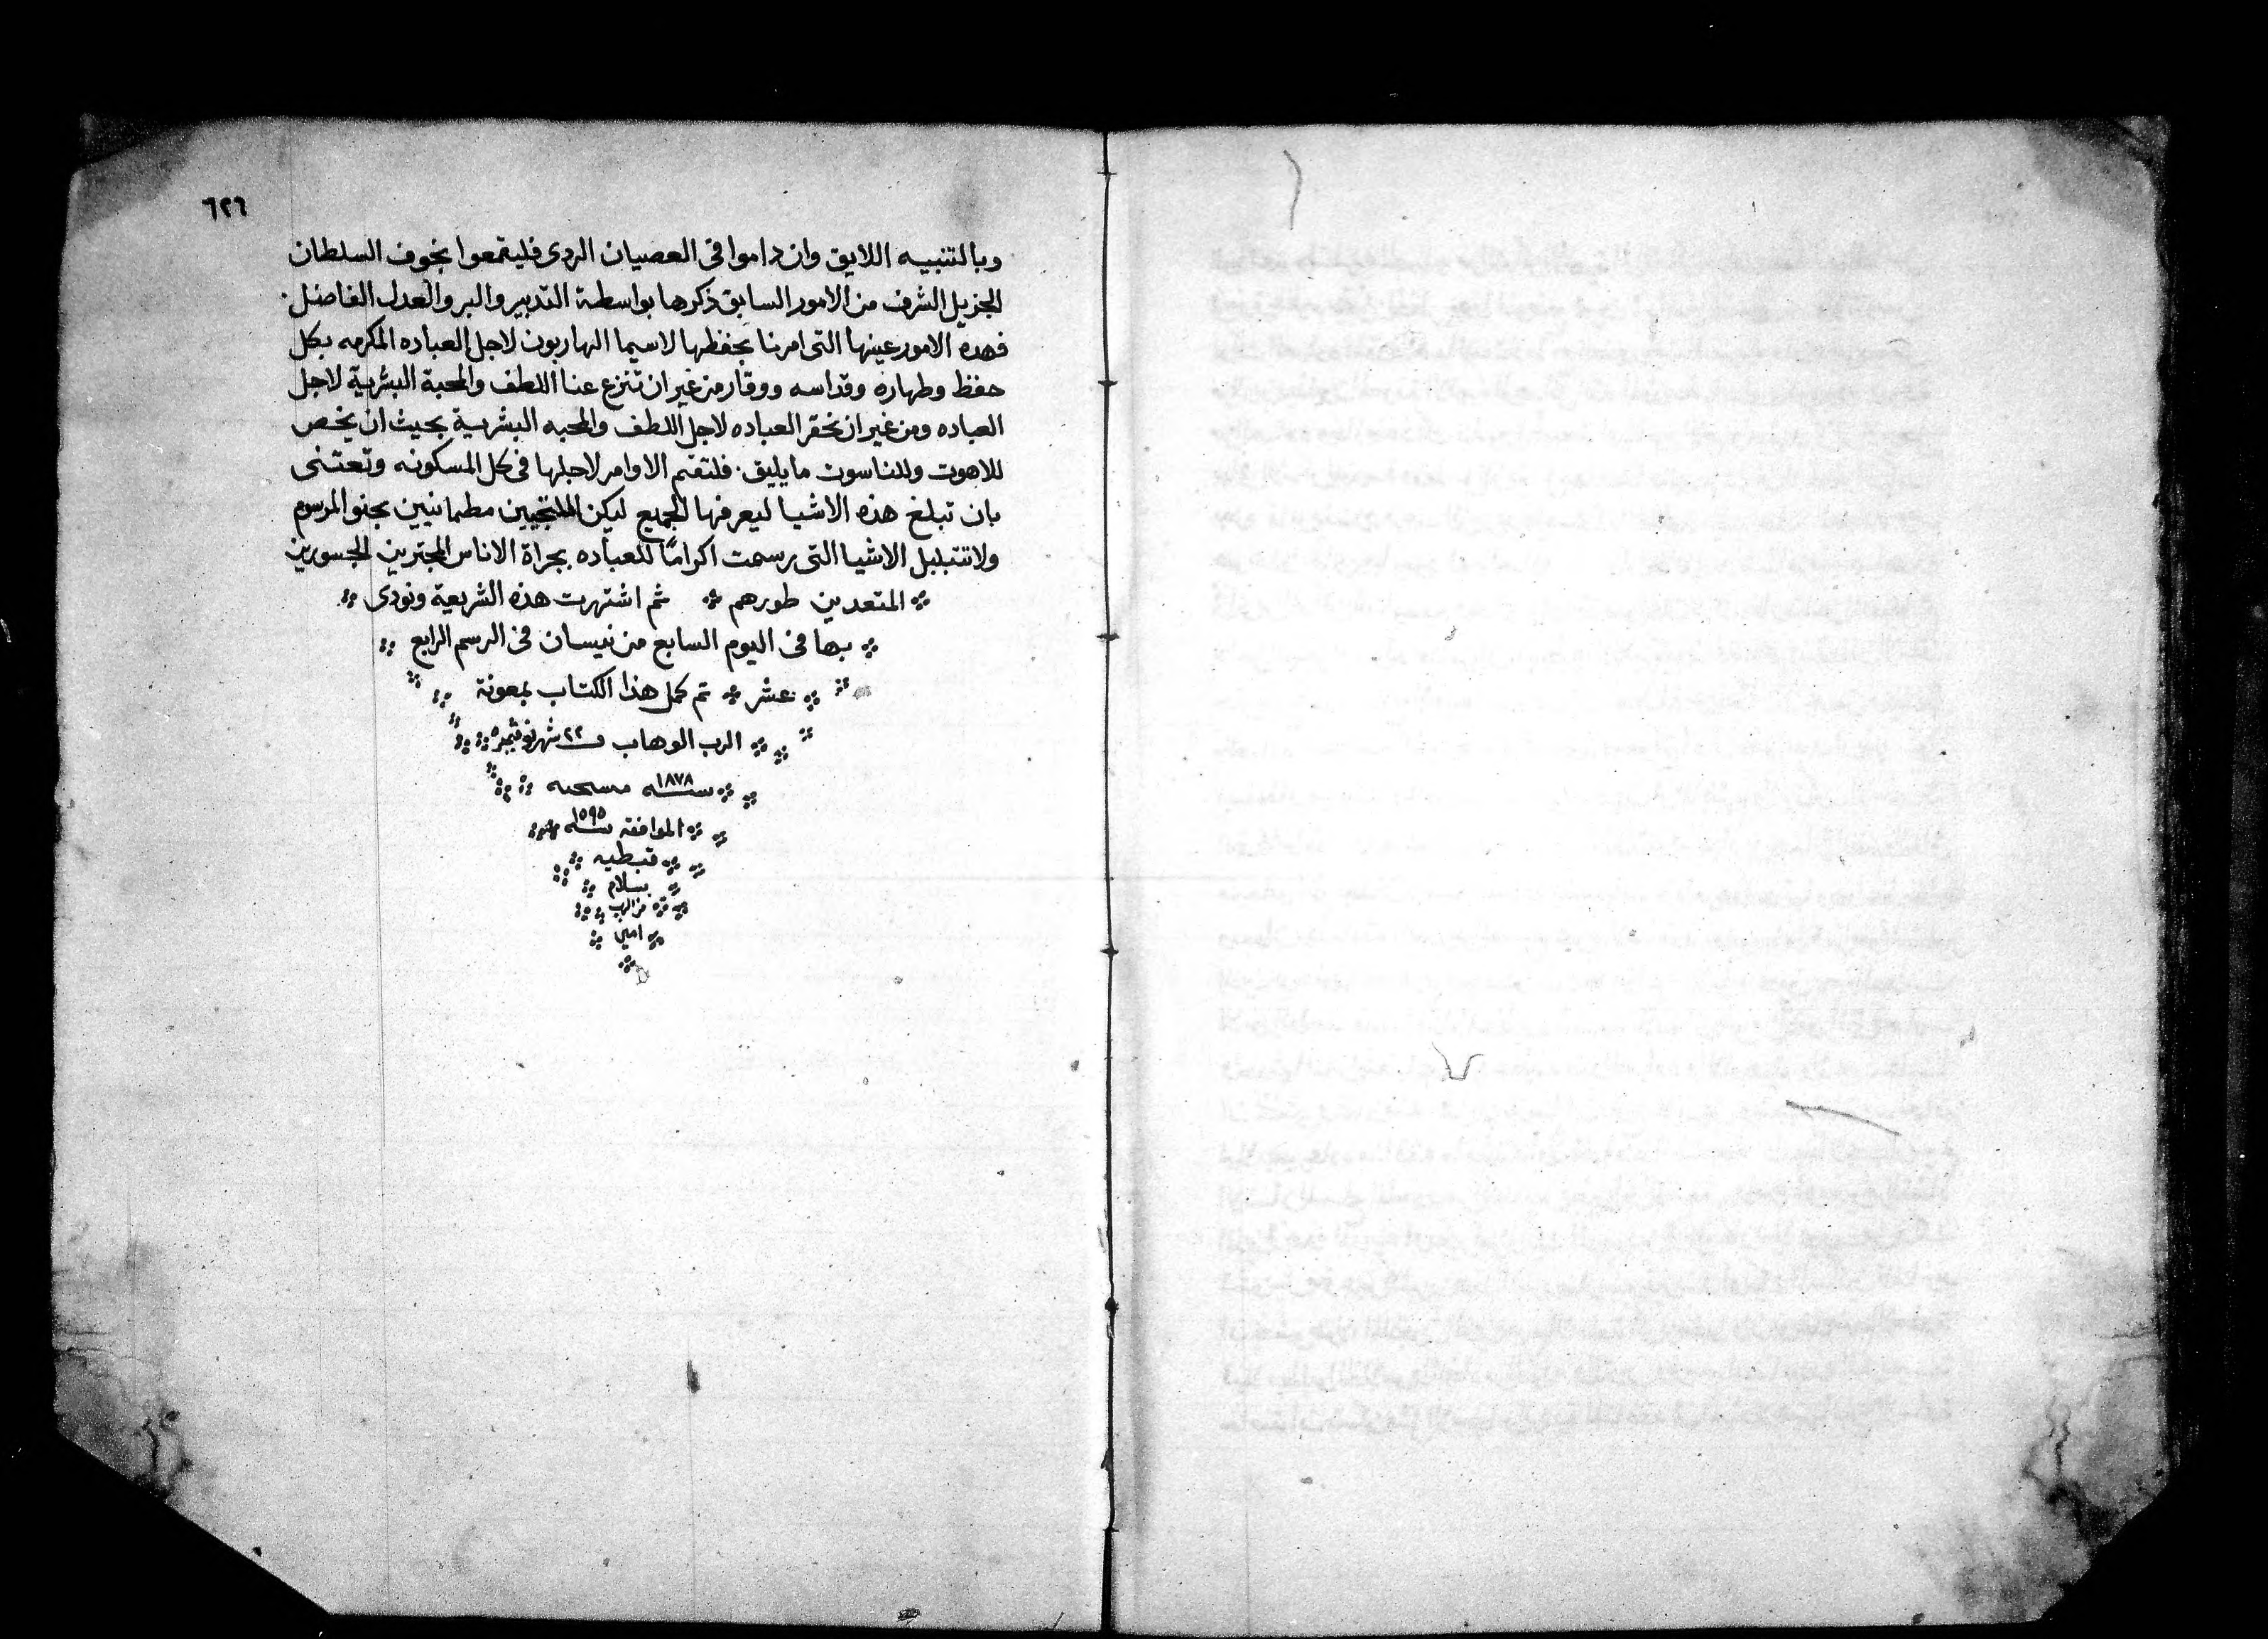 ٦٢٦
وبالتنبيه اللايق وان داموا فى العصيان الردى فليقمعوا بخوف السلطان
الجزيل الشرف من الامور السابق ذكرها بواسطة التدبير والبر والعدل الفاضل.
فهده الامور عينها التى امرنا بحفظها لاسيما الهاربون لاجل العباده المكرمه بكل
حفظ وطهاره وقداسه ووقار من غير ان تنزع عنا اللطف والمحبة البشرية لاجل
العباده ومن غير ان نحقر العباده لاجل اللطف والمحبه البشرية بحيث ان يخص
للاهوت وللناسوت ما يليق. فلتقم الاوامر لاجلها فى كل المسكونه وتعتنى
بان تبلغ هذه الاشيا ليعرفها الجميع ليكن الملتجيين مطمانيين بحنو المرسوم
ولا تتبلبل الاشيا التى رسمت اكرامًا للعباده بجراة الاناس المجترين الجسورين
المتعدين طورهم ثم اشتهرت هذه الشريعة ونودى
بها فى اليوم السابع من نيسان فى الرسم الرابع
عشر تم كمل هذا الكتاب بمعونة
الرب الوهاب ٢٢ شهر نوفمبر
سنه ١٨٧٨ مسيحيه
الموافقه سنه ١٥٩٥
قبطيه
بسلام
من الرب
امين